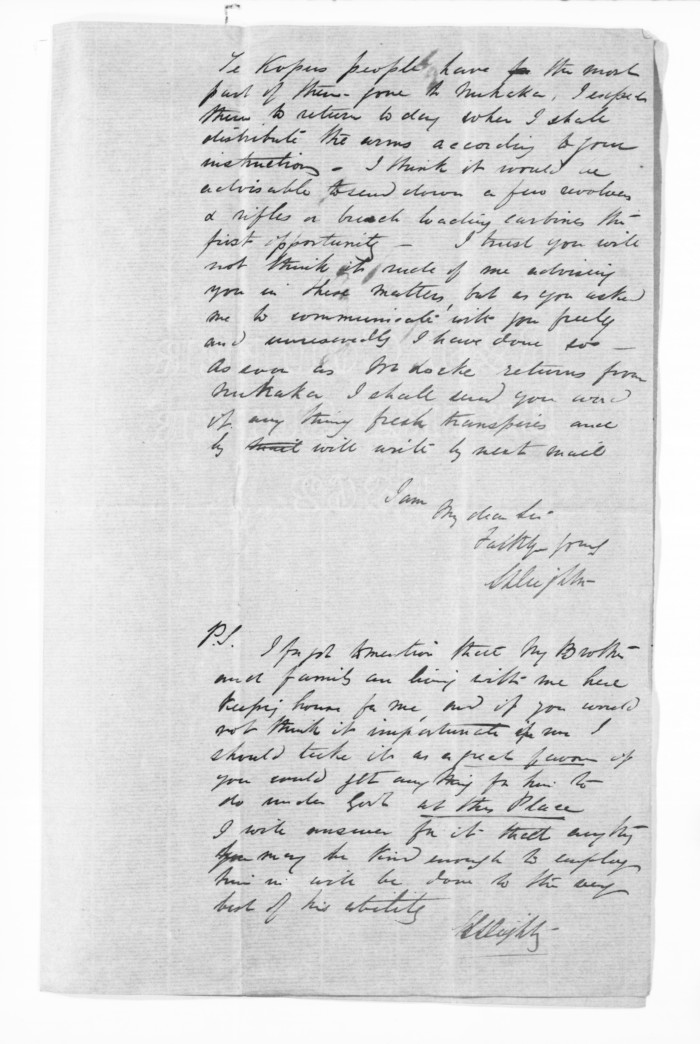 Te Kopus people have for the most
part of them gone to Nukaka, I expect
them to return to day when I shall
distribute the arms according to your
instructions - I think it would be
advisable to send down a few revolvers
& rifles or breach loading carbines the
first opportunity - I trust you will
not think it rude of me advising
you in these matters, but as you asked
me to communicate with you freely
and unreservedly I have done so -
As soon as Mr Locke returns from
Nukaka I shall send you word
if any thing fresh transpires and
by mail will write by next mail
I am
My dear Sir
Faithfy yours
P.S. I forgot to mention that my Brother
and family are living with me here
keeping house for me, and if you would
not think it importunate in me I
should take it as a great favour if
you could get any thing for him to
do under Govt at this Place
I will answer for it that anything
you may be kind enough to employ
him in will be done to the very
best of his ability